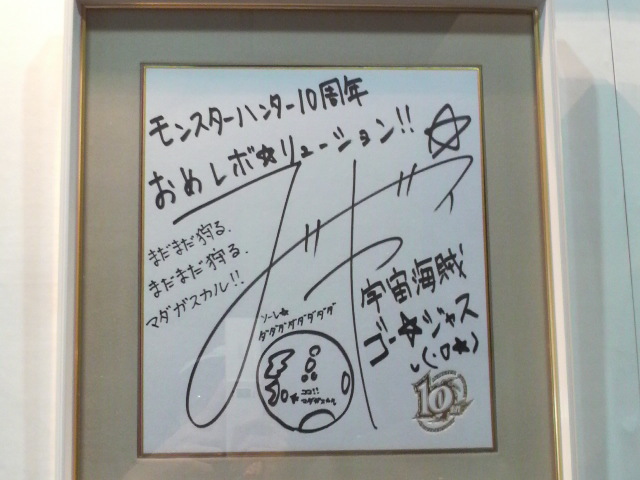 モンスターハンター10周年
おめレボ☆リューション!!
まだまだ狩る、
まだまだ狩る、
マダガスカル!!
宇宙海賊
ゴー☆ジャス
ソーレ☆
ダダダダダダダダ
ココ!!
マダガスカル
10